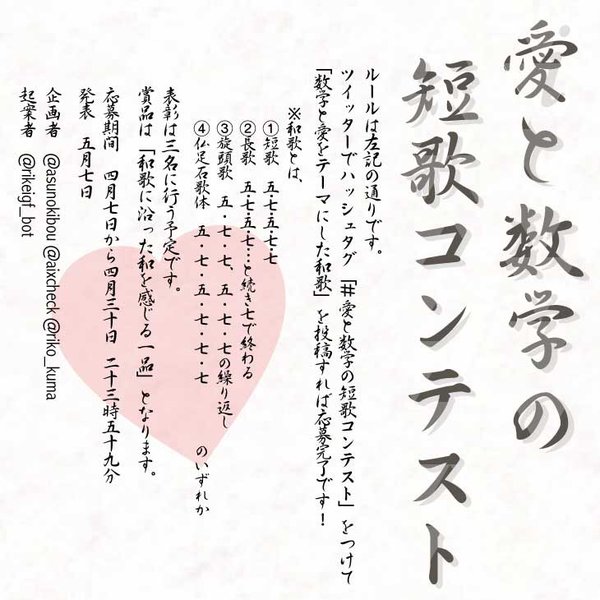 愛と数学の
短歌コンテスト
ルールは左記の通りです。
ツイッターでハッシュタグ「#愛と数学の短歌コンテスト」をつけて
「数学と愛をテーマにした和歌」を投稿すれば応募完了です!
※和歌とは、
①短歌 五・七・五・七・七
②長歌 五・七・五・七…と続き七で終わる
③旋頭歌 五・七・七、五・七・七の繰り返し
④仏足石歌体 五・七・五・七・七・七 のいずれか
表彰は三名に行う予定です。
賞品は「和歌に沿った和を感じる一品」となります。
応募期間 四月七日から四月三十日 二十三時五十九分
発表 五月七日
企画者 @asunokibou @aixcheck @riko_kuma
起案者 @rikeigf_bot